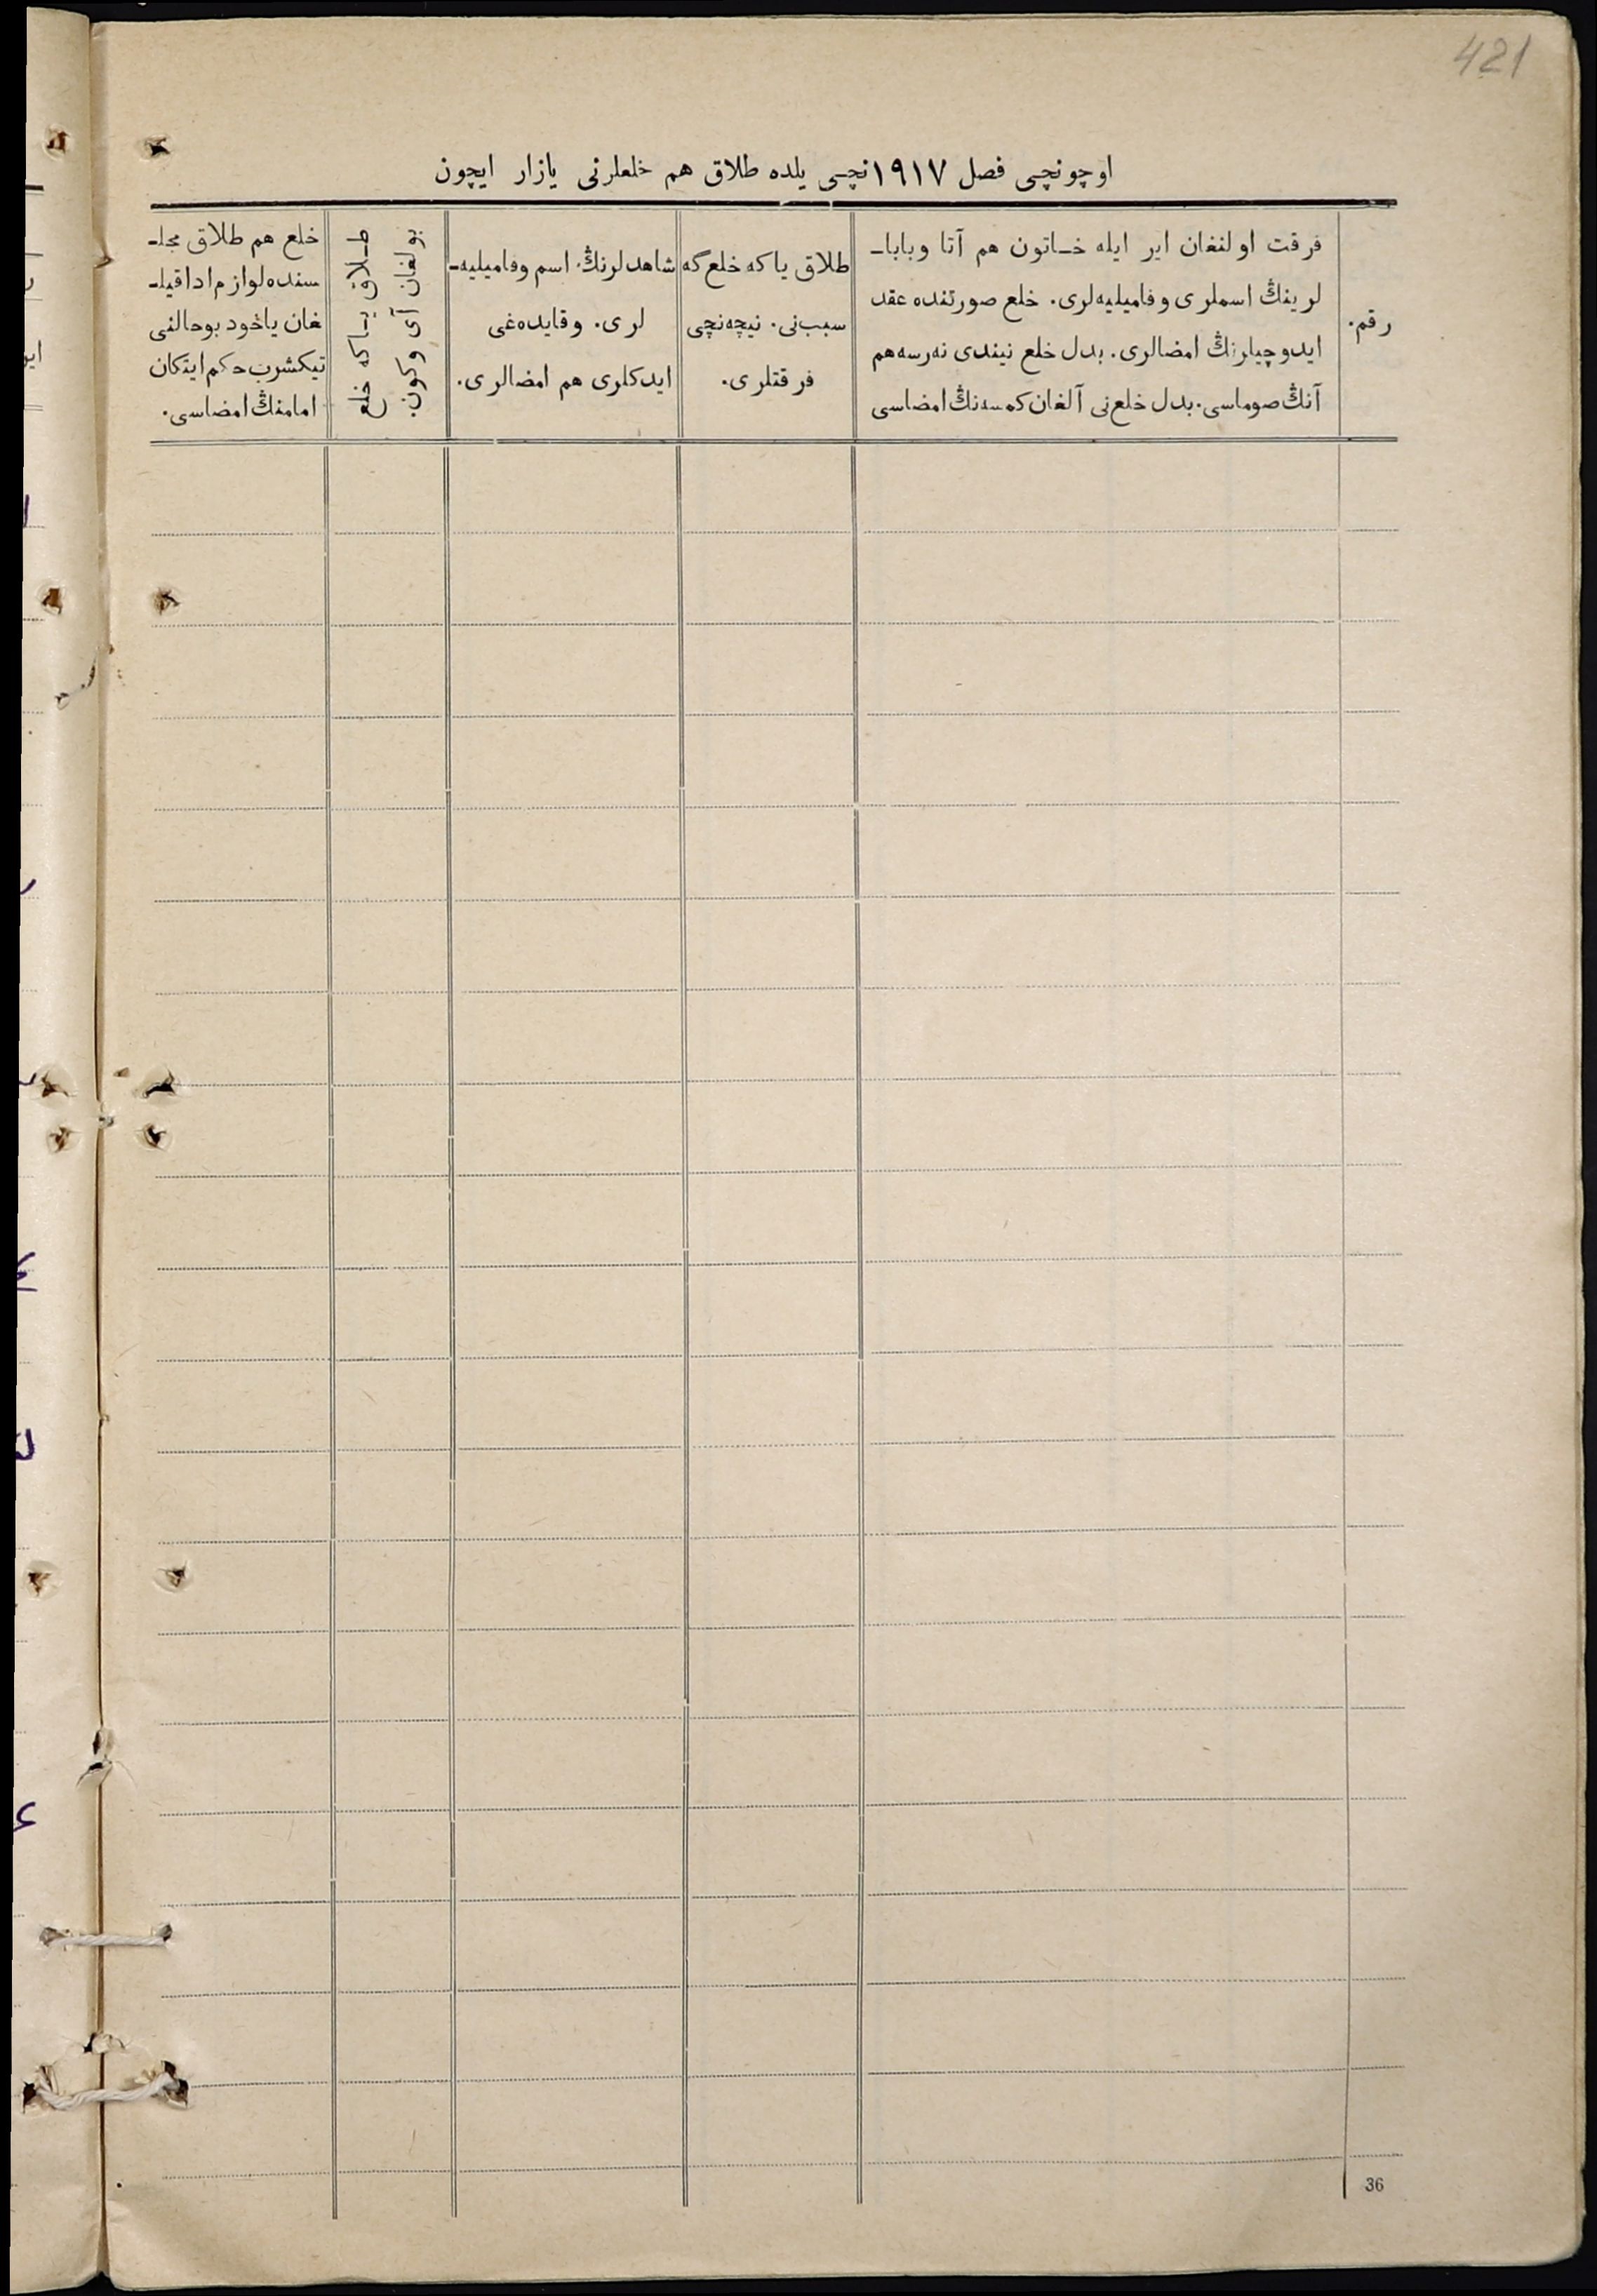 421
اوچونچى فصل ١٩١٧نچى يلده طلاق هم خلعلرنى يازار ايچون
رقم.
فرقت اولنغان اير ايله خـاتون هم آتا وبابا‌ـ
لرينڭ اسملرى وفاميليه‌لرى. خلع صورتنده عقد
ايدوچيلرنڭ امضالرى. بدل خلع نيندى نه‌رسه هم
آنڭ صوماسى. بدل خلع‌نى آلغان كمسه‌نڭ امضاسى
طلاق ياكه خلع‌گه
سبب‌نى. نيچه‌نچى
فرقتلرى.
شاهدلرنڭ اسم وفاميليه‌ـ
لرى. وقايده‌غى
ايدكلرى هم امضالرى.
طـلاق يـاكه خلع
بولغان آى وكون.
خلع هم طلاق مجلـ
سنده لوازم ادا قيلـ
غان ياخود بوحالنى
تيكشرب حكم ايتكان
امامنڭ امضاسى.
36